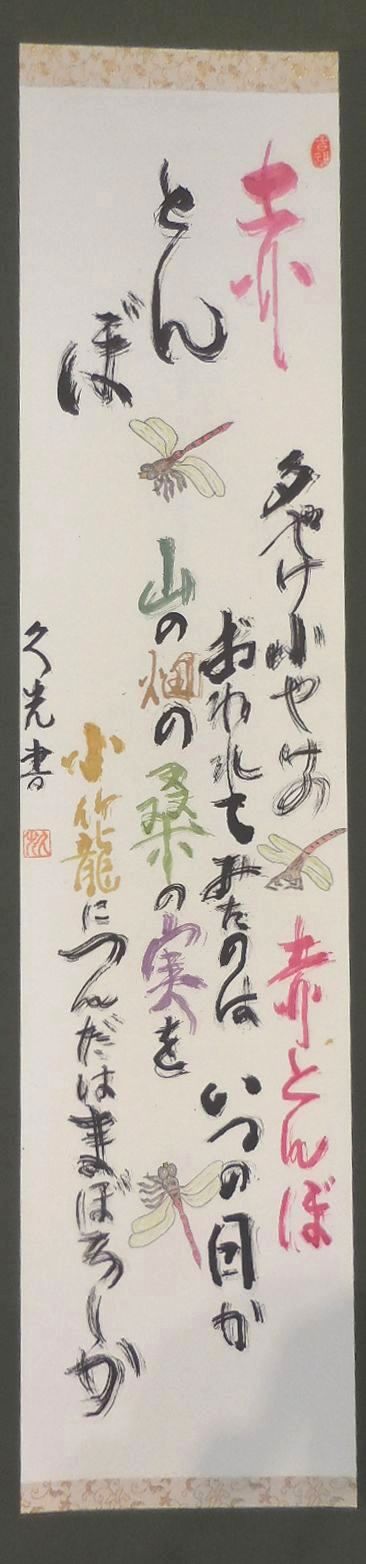 赤
とん
ぼ
夕やけ小やけの 赤とんぼ
おわれてみたのは いつの日か
山の畑の桑の実を
小籠につんだはまぼろしか
久光書